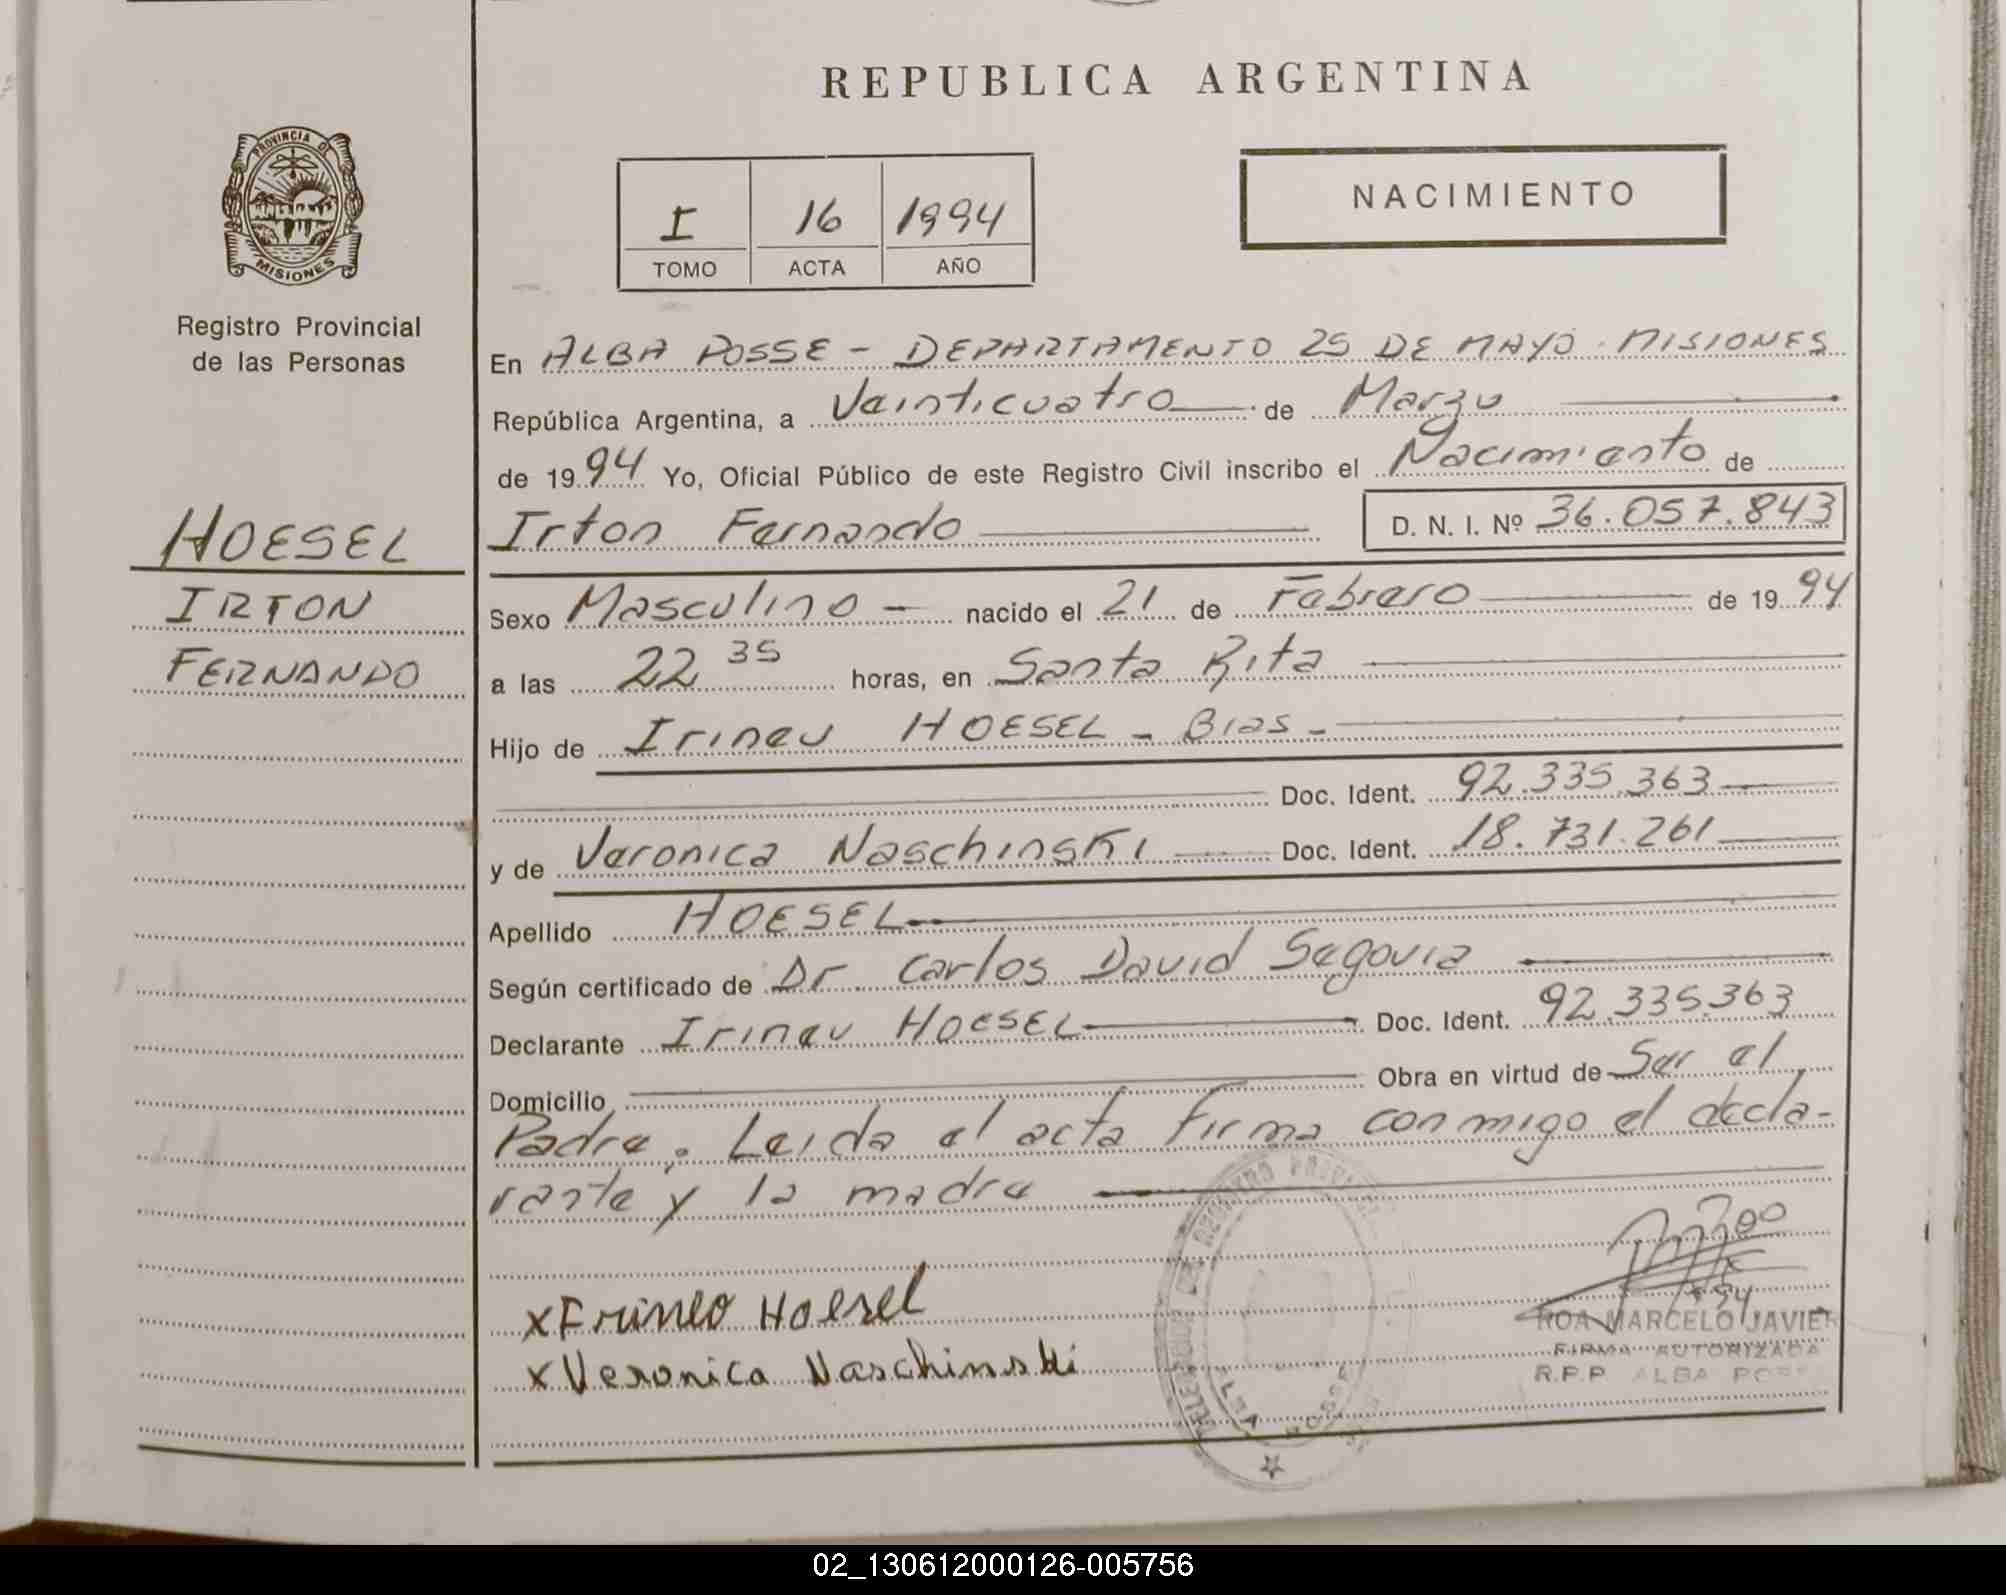 REPUBLICA ARGENTINA
PROVINCIA DE MISIONES
Registro Provincial
de las Personas
I 16 1994
TOMO ACTA AÑO
NACIMIENTO
HOESEL
IRTON
FERNANDO
En ALBA POSSE - DEPARTAMENTO 25 DE MAYO - MISIONES
República Argentina, a Veinticuatro de Marzo
de 1994 Yo, Oficial Público de este Registro Civil inscribo el Nacimiento de
Irton Fernando D. N. I. Nº 36.057.843
Sexo Masculino - nacido el 21 de Febrero de 1994
a las 22 35 horas, en Santa Rita
Hijo de Irineu HOESEL - Bras -
Doc. Ident. 92.335.363
y de Veronica Naschinski Doc. Ident. 18.731.261
Apellido HOESEL
Según certificado de Dr Carlos David Segovia
Declarante Irineu HOESEL Doc. Ident. 92.335.363
Domicilio Obra en virtud de Ser el
Padre; Leida el acta firma conmigo el decla-
rante y la madre
x Frineo Hoesel
x Veronica Naschinski
ROA MARCELO JAVIER
FIRMA AUTORIZADA
R.P.P ALBA POSSE
02_130612000126-005756